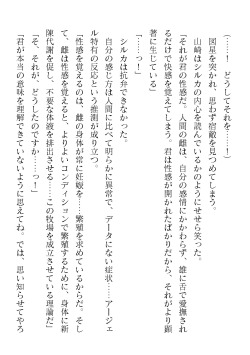 (……！　どうしてそれを……！)
　図星を突かれ、思わず宿敵を見つめてしまう。
　山崎はシルカの内心を読んでいるかのようにせせら笑った。
「それが君の性感だ。人間の雌は、自分の感情にかかわらず、誰に舌で愛撫され
るだけで快感を覚えてしまう。君は性感が開かれたばかりだから、それがより顕
著に生じている」
「……っ！」
　シルカは抗弁できなかった。
　自分の感じ方は人間に比べて明らかに異常で、データにない症状……アージェ
ル特有の反応という推測が成り立つ。
「性感を覚えるのは、雌の身体が常に妊娠を……繁殖を求めているからだ。そし
て、雌は性感を覚えると、よりよいコンディションで繁殖するために、身体に新
陳代謝を促し、不要な体液を排出させる……この牧場を成立させている理論だ」
「そ、それが、どうしたのですか……っ！」
「君が本当の意味を理解できていないように思えてね。では、思い知らせてやろ